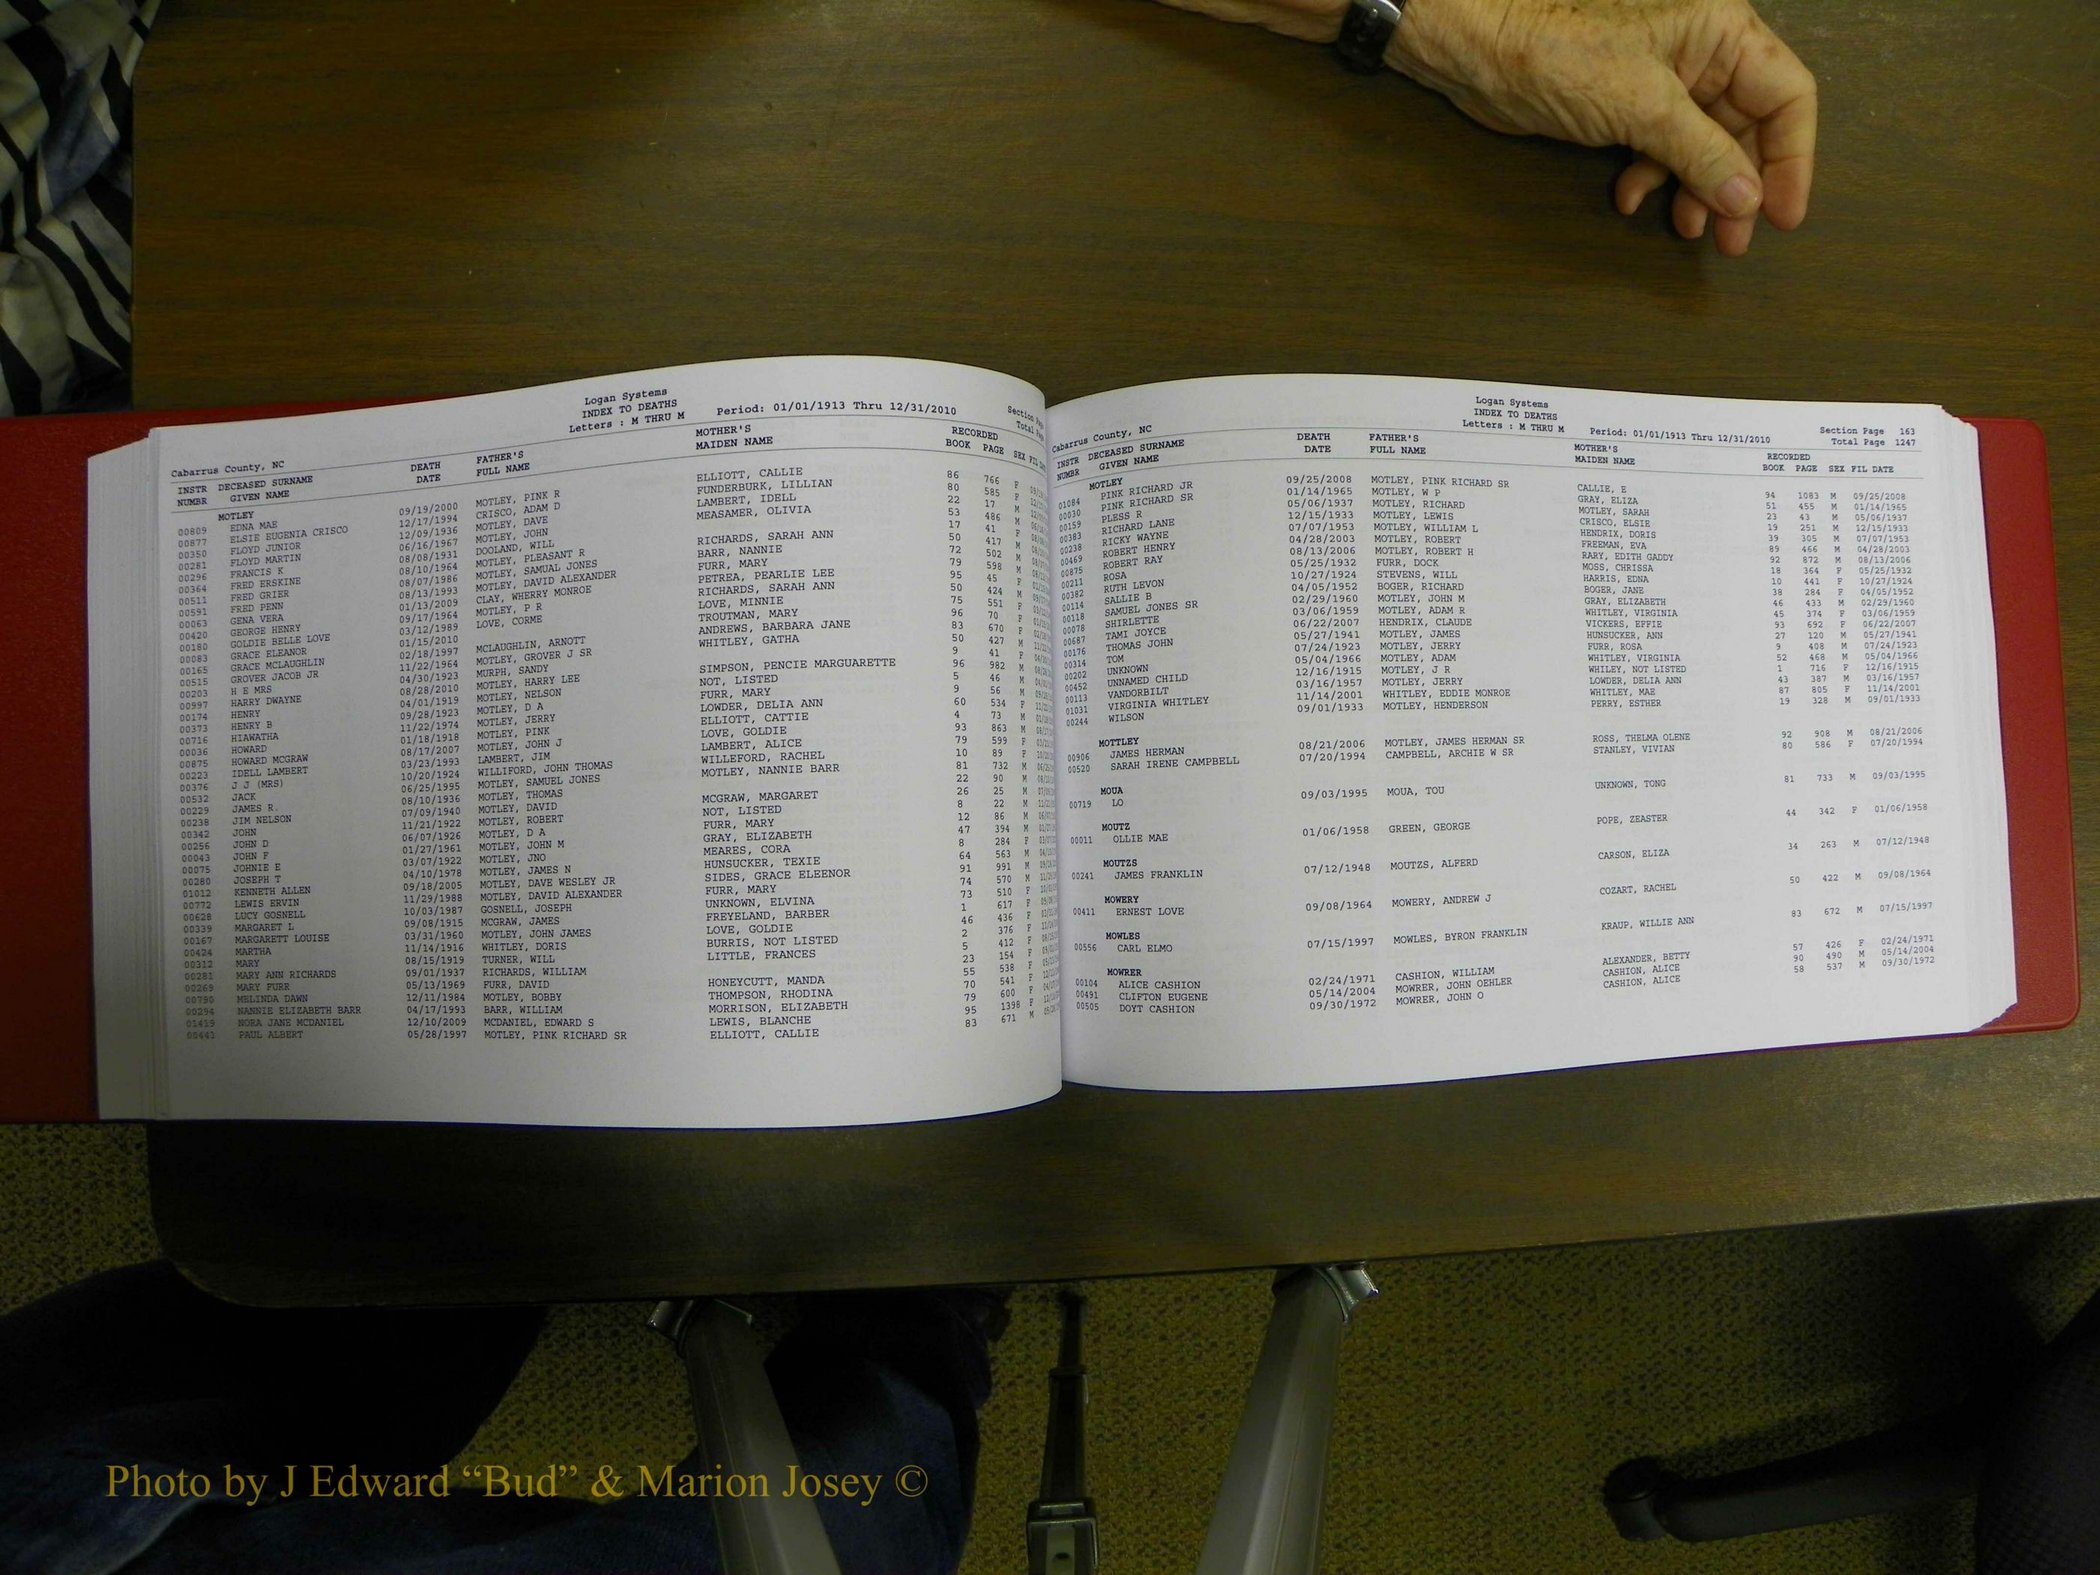 Logan Systems
INDEX TO DEATHS
Letters : M THRU M Period: 01/01/1913 Thru 12/31/2010
Cabarrus County, NC
INSTR DECEASED SURNAME DEATH FATHER'S MOTHER'S RECORDED
NUMBR GIVEN NAME DATE FULL NAME MAIDEN NAME BOOK PAGE SEX
MOTLEY
00809 EDNA MAE 09/19/2000 MOTLEY, PINK R ELLIOTT, CALLIE 86 766 F
00877 ELSIE EUGENIA CRISCO 12/17/1994 CRISCO, ADAM D FUNDERBURK, LILLIAN 80 585 F
00350 FLOYD JUNIOR 12/09/1936 MOTLEY, DAVE LAMBERT, IDELL 22 17 M
00281 FLOYD MARTIN 06/16/1967 MOTLEY, JOHN MEASAMER, OLIVIA 53 486 M
00296 FRANCIS K 08/08/1931 DOOLAND, WILL 17 41 F
00364 FRED ERSKINE 08/10/1964 MOTLEY, PLEASANT R RICHARDS, SARAH ANN 50 417 M
00511 FRED GRIER 08/07/1986 MOTLEY, SAMUAL JONES BARR, NANNIE 72 502 M
00591 FRED PENN 08/13/1993 MOTLEY, DAVID ALEXANDER FURR, MARY 79 598 M
00063 GENA VERA 01/13/2009 CLAY, WHERRY MONROE PETREA, PEARLIE LEE 95 45 F
00420 GEORGE HENRY 09/17/1964 MOTLEY, P R RICHARDS, SARAH ANN 50 424 M
00180 GOLDIE BELLE LOVE 03/12/1989 LOVE, CORME LOVE, MINNIE 75 551 F
00083 GRACE ELEANOR 01/15/2010 TROUTMAN, MARY 96 70 F
00165 GRACE MCLAUGHLIN 02/18/1997 MCLAUGHLIN, ARNOTT ANDREWS, BARBARA JANE 83 670 F
00515 GROVER JACOB JR 11/22/1964 MOTLEY, GROVER J SR WHITLEY, GATHA 50 427 M
00203 H E MRS 04/30/1923 MURPH, SANDY 9 41 F
00997 HARRY DWAYNE 08/28/2010 MOTLEY, HARRY LEE SIMPSON, PENCIE MARGUARETTE 96 982 M
00174 HENRY 04/01/1919 MOTLEY, NELSON NOT, LISTED 5 46 M
00373 HENRY B 09/28/1923 MOTLEY, D A FURR, MARY 9 56 M
00716 HIAWATHA 11/22/1974 MOTLEY, JERRY LOWDER, DELIA ANN 60 534 F
00036 HOWARD 01/18/1918 MOTLEY, PINK ELLIOTT, CATTIE 4 73 M
00875 HOWARD MCGRAW 08/17/2007 MOTLEY, JOHN J LOVE, GOLDIE 93 863 M
00223 IDELL LAMBERT 03/23/1993 LAMBERT, JIM LAMBERT, ALICE 79 599 F
00376 J J (MRS) 10/20/1924 WILLIFORD, JOHN THOMAS WILLEFORD, RACHEL 10 89 F
00532 JACK 06/25/1995 MOTLEY, SAMUEL JONES MOTLEY, NANNIE BARR 81 732 M
00229 JAMES R. 08/10/1936 MOTLEY, THOMAS 22 90 M
00238 JIM NELSON 07/09/1940 MOTLEY, DAVID MCGRAW, MARGARET 26 25 M
00342 JOHN 11/21/1922 MOTLEY, ROBERT NOT, LISTED 8 22 M
00256 JOHN D 06/07/1926 MOTLEY, D A FURR, MARY 12 86 M
00043 JOHN F 01/27/1961 MOTLEY, JOHN M GRAY, ELIZABETH 47 394 M
00075 JOHNIE E 03/07/1922 MOTLEY, JNO MEARES, CORA 8 284 F
00280 JOSEPH T 04/10/1978 MOTLEY, JAMES N HUNSUCKER, TEXIE 64 563 M
01012 KENNETH ALLEN 09/18/2005 MOTLEY, DAVE WESLEY JR SIDES, GRACE ELEENOR 91 991 M
00772 LEWIS ERVIN 11/29/1988 MOTLEY, DAVID ALEXANDER FURR, MARY 74 570 M
00628 LUCY GOSNELL 10/03/1987 GOSNELL, JOSEPH UNKNOWN, ELVINA 73 510 F
00339 MARGARET L 09/08/1915 MCGRAW, JAMES FREYELAND, BARBER 1 617 F
00167 MARGARETT LOUISE 03/31/1960 MOTLEY, JOHN JAMES LOVE, GOLDIE 46 436 F
00424 MARTHA 11/14/1916 WHITLEY, DORIS BURRIS, NOT LISTED 2 376 F
00312 MARY 08/15/1919 TURNER, WILL LITTLE, FRANCES 5 412 F
00281 MARY ANN RICHARDS 09/01/1937 RICHARDS, WILLIAM 23 154 F
00269 MARY FURR 05/13/1969 FURR, DAVID HONEYCUTT, MANDA 55 538 F
00790 MELINDA DAWN 12/11/1984 MOTLEY, BOBBY THOMPSON, RHODINA 70 541 F
00294 NANNIE ELIZABETH BARR 04/17/1993 BARR, WILLIAM MORRISON, ELIZABETH 79 600 F
01419 NORA JANE MCDANIEL 12/10/2009 MCDANIEL, EDWARD S LEWIS, BLANCHE 95 1398 F
00443 PAUL ALBERT 05/28/1997 MOTLEY, PINK RICHARD SR ELLIOTT, CALLIE 83 671 M
Logan Systems
INDEX TO DEATHS
Letters : M THRU M Period: 01/01/1913 Thru 12/31/2010
Section Page 163
Total Page 1247
Cabarrus County, NC
INSTR DECEASED SURNAME DEATH FATHER'S MOTHER'S RECORDED
NUMBR GIVEN NAME DATE FULL NAME MAIDEN NAME BOOK PAGE SEX FIL DATE
MOTLEY
01084 PINK RICHARD JR 09/25/2008 MOTLEY, PINK RICHARD SR CALLIE, E 94 1083 M 09/25/2008
00030 PINK RICHARD SR 01/14/1965 MOTLEY, W P GRAY, ELIZA 51 455 M 01/14/1965
00159 PLESS R 05/06/1937 MOTLEY, RICHARD MOTLEY, SARAH 23 43 M 05/06/1937
00383 RICHARD LANE 12/15/1933 MOTLEY, LEWIS CRISCO, ELSIE 19 251 M 12/15/1933
00238 RICKY WAYNE 07/07/1953 MOTLEY, WILLIAM L HENDRIX, DORIS 39 305 M 07/07/1953
00469 ROBERT HENRY 04/28/2003 MOTLEY, ROBERT FREEMAN, EVA 89 466 M 04/28/2003
00875 ROBERT RAY 08/13/2006 MOTLEY, ROBERT H RARY, EDITH GADDY 92 872 M 08/13/2006
00211 ROSA 05/25/1932 FURR, DOCK MOSS, CHRISSA 18 364 F 05/25/1932
00382 RUTH LEVON 10/27/1924 STEVENS, WILL HARRIS, EDNA 10 441 F 10/27/1924
00114 SALLIE B 04/05/1952 BOGER, RICHARD BOGER, JANE 38 284 F 04/05/1952
00118 SAMUEL JONES SR 02/29/1960 MOTLEY, JOHN M GRAY, ELIZABETH 46 433 M 02/29/1960
00078 SHIRLETTE 03/06/1959 MOTLEY, ADAM R WHITLEY, VIRGINIA 45 374 F 03/06/1959
00687 TAMI JOYCE 06/22/2007 HENDRIX, CLAUDE VICKERS, EFFIE 93 692 F 06/22/2007
00176 THOMAS JOHN 05/27/1941 MOTLEY, JAMES HUNSUCKER, ANN 27 120 M 05/27/1941
00314 TOM 07/24/1923 MOTLEY, JERRY FURR, ROSA 9 408 M 07/24/1923
00202 UNKNOWN 05/04/1966 MOTLEY, ADAM WHITLEY, VIRGINIA 52 468 M 05/04/1966
00452 UNNAMED CHILD 12/16/1915 MOTLEY, J R WHILEY, NOT LISTED 1 716 F 12/16/1915
00113 VANDORBILT 03/16/1957 MOTLEY, JERRY LOWDER, DELIA ANN 43 387 M 03/16/1957
01031 VIRGINIA WHITLEY 11/14/2001 WHITLEY, EDDIE MONROE WHITLEY, MAE 87 805 F 11/14/2001
00244 WILSON 09/01/1933 MOTLEY, HENDERSON PERRY, ESTHER 19 328 M 09/01/1933
MOTTLEY
00906 JAMES HERMAN 08/21/2006 MOTLEY, JAMES HERMAN SR ROSS, THELMA OLENE 92 908 M 08/21/2006
00520 SARAH IRENE CAMPBELL 07/20/1994 CAMPBELL, ARCHIE W SR STANLEY, VIVIAN 80 586 F 07/20/1994
MOUA
00719 LO 09/03/1995 MOUA, TOU UNKNOWN, TONG 81 733 M 09/03/1995
MOUTZ
00011 OLLIE MAE 01/06/1958 GREEN, GEORGE POPE, ZEASTER 44 342 F 01/06/1958
MOUTZS
00241 JAMES FRANKLIN 07/12/1948 MOUTZS, ALFERD CARSON, ELIZA 34 263 M 07/12/1948
MOWERY
00411 ERNEST LOVE 09/08/1964 MOWERY, ANDREW J COZART, RACHEL 50 422 M 09/08/1964
MOWLES
00556 CARL ELMO 07/15/1997 MOWLES, BYRON FRANKLIN KRAUP, WILLIE ANN 83 672 M 07/15/1997
MOWRER
00104 ALICE CASHION 02/24/1971 CASHION, WILLIAM ALEXANDER, BETTY 57 426 F 02/24/1971
00491 CLIFTON EUGENE 05/14/2004 MOWRER, JOHN OEHLER CASHION, ALICE 90 490 M 05/14/2004
00505 DOYT CASHION 09/30/1972 MOWRER, JOHN O CASHION, ALICE 58 537 M 09/30/1972
Photo by J Edward “Bud” & Marion Josey ©